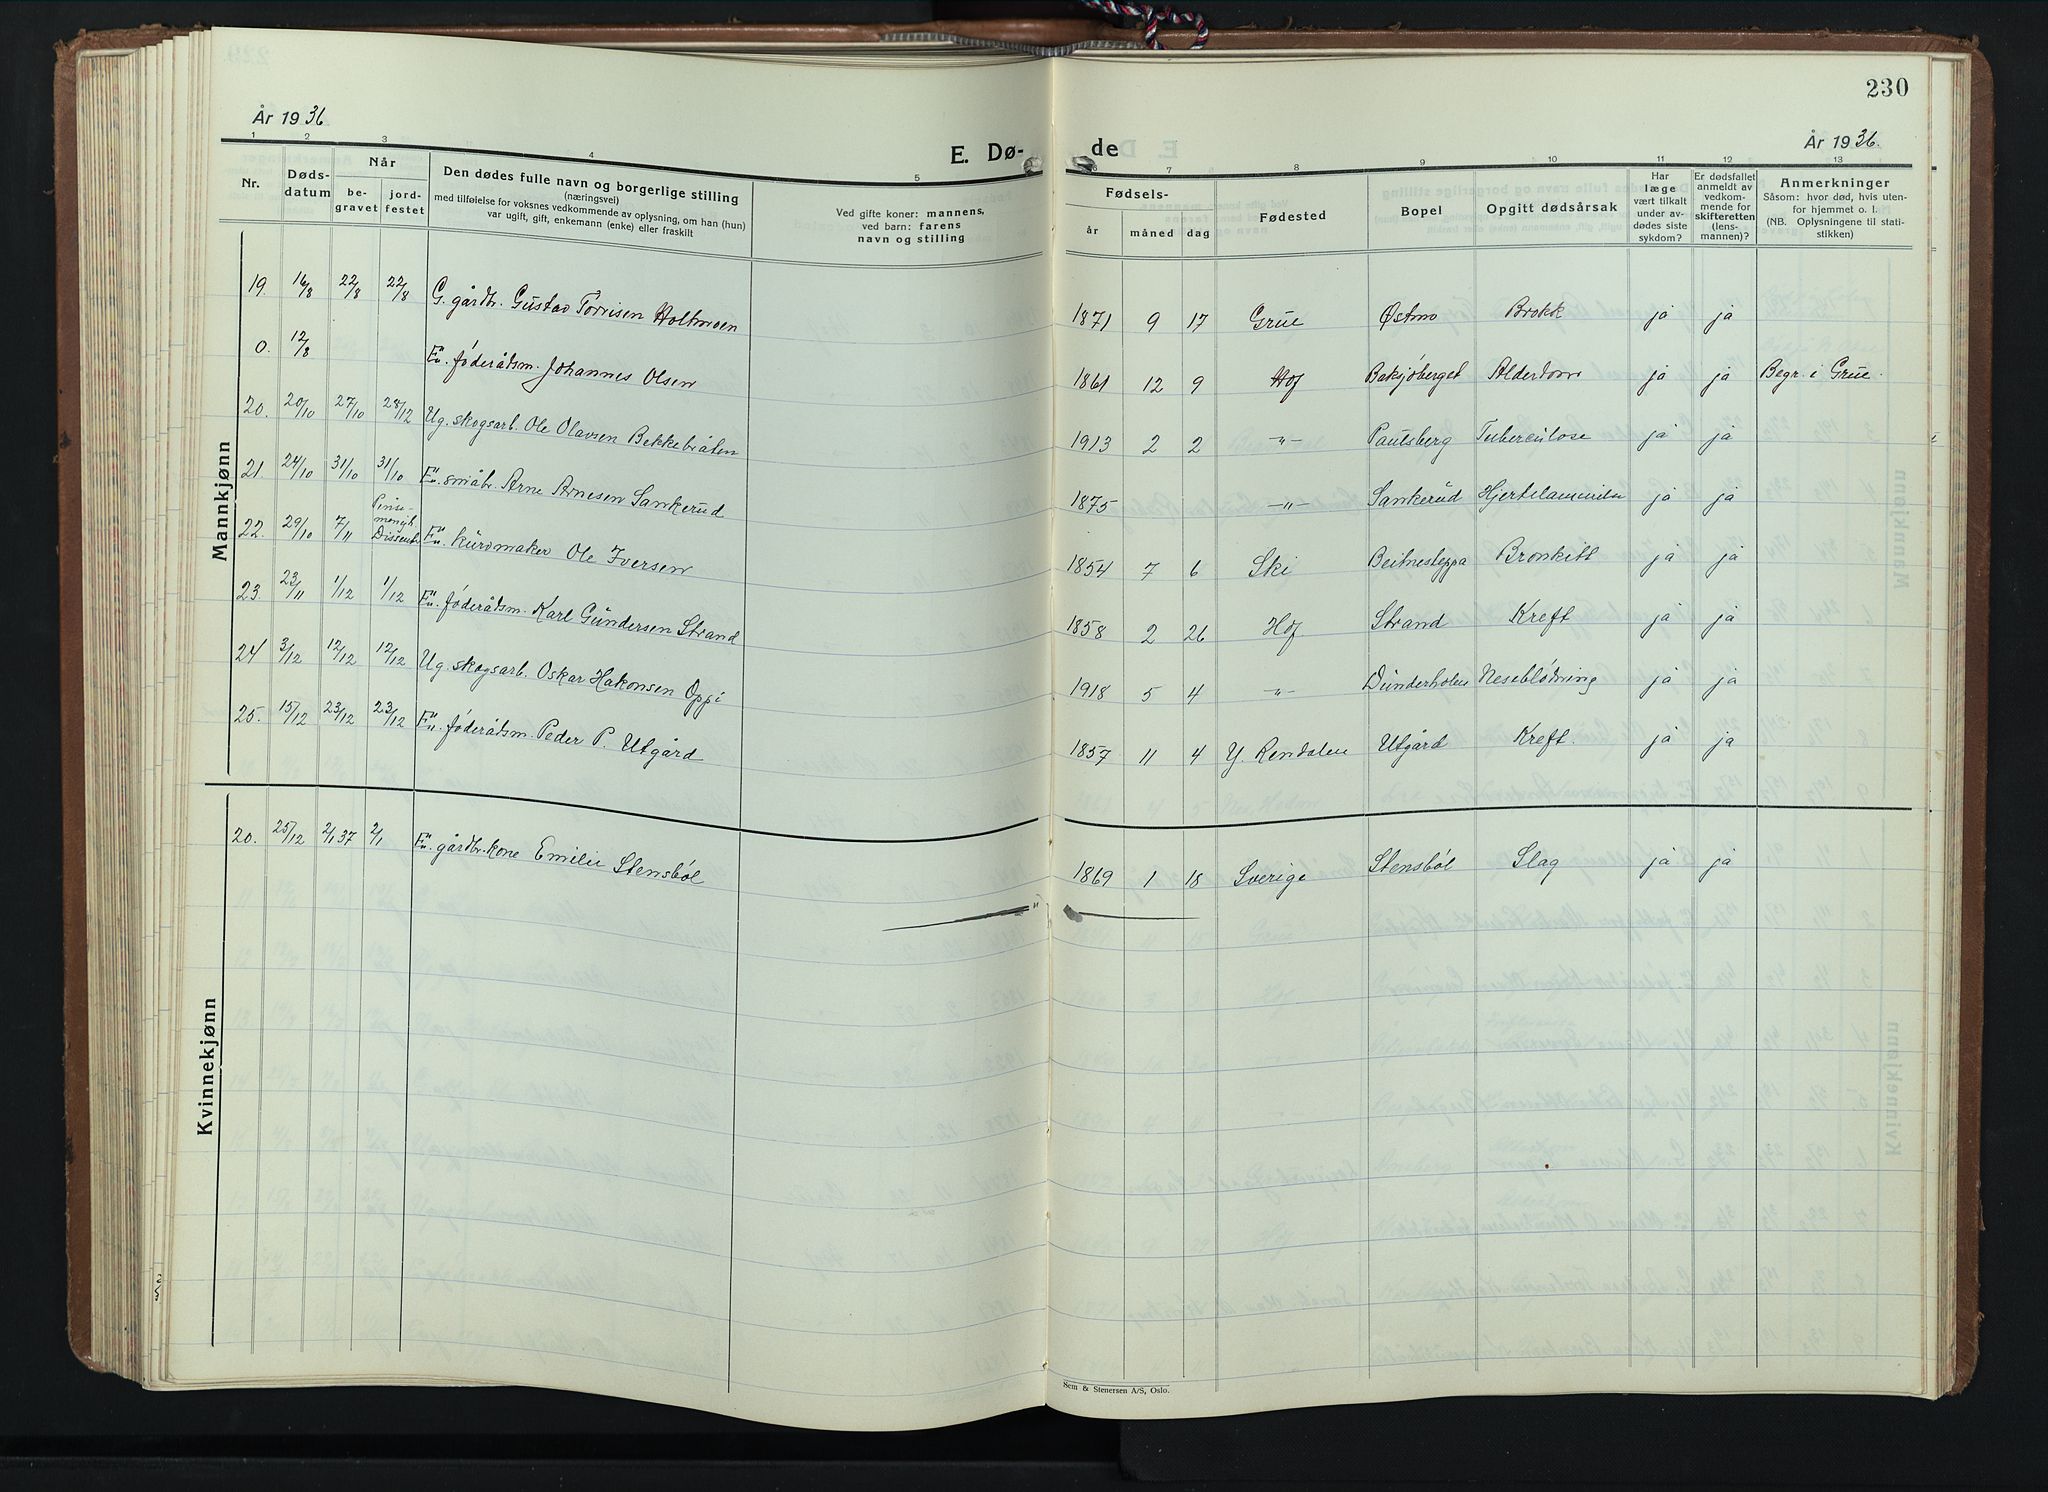 230
År 1936
E. Dø-
de
År 1936.
1 2 3 4 5 6 7 8 9 10 11 12 13
Nr.
Døds-
datum
Når
be-
gravet
jord-
festet
Den dødes fulle navn og borgerlige stilling
(næringsvei)
med tilføielse for voksnes vedkommende av oplysning, om han (hun)
var ugift, gift, enkemann (enke) eller fraskilt
Ved gifte koner: mannens,
ved barn: farens
navn og stilling
Fødsels-
år måned dag
Fødested
Bopel
Opgitt dødsårsak
Har
læge
vært tilkalt
under av-
dødes siste
sykdom?
Er dødsfallet
anmeldt av
vedkom-
mende for
skifteretten
(lens-
mannen)?
Anmerkninger
Såsom: hvor død, hvis uten-
for hjemmet o. l.
(NB. Oplysningene til stati-
stikken)
Mannkjønn
19. 16/8 22/8 22/8 G. gårdbr. Gustav Torrisen Holtmoen 1871 9 17 Grue Østmo Brokk ja ja
0. 12/8 Em. føderådsm. Johannes Olsen 1861 12 9 Hof Baksjøberget Alderdom ja ja Begr. i Grue.
20. 20/10 27/10 28/12 Ug. skogsarb. Ole Olavsen Bekkebråten 1913 2 2 -"- Paulsberg Tuberculose ja ja
21 24/10 31/10 31/10 Em. småbr. Arne Arnesen Sankerud 1875 -"- Sankerud Hjertelammelse ja ja
22. 29/10 7/11 Pinse-
menigh.
Dissenter Em. kurvmaker Ole Iversen 1854 7 6 Ski Beitnesteppa Bronkitt ja ja
23. 23/11 1/12 1/12 Em. føderådsm. Karl Gundersen Strand 1858 2 26 Hof Strand Kreft ja ja
24 3/12 12/12 12/12 Ug. skogsarb. Oskar Hakonsen Oppi 1918 5 4 -"- Dunderholen Neseblødning ja ja
25. 15/12 23/12 23/12 Em. føderådsm. Peder P. Utgård 1857 11 4 Y. Rendalen Utgård Kreft. ja ja
Kvinnekjønn
20. 25/12 2/1 37 2/1 En. gårdbr. kone Emilie Stensbøl 1869 1 18 Sverige Stensbøl Slag ja ja
Sem & Stenersen A/S, Oslo.